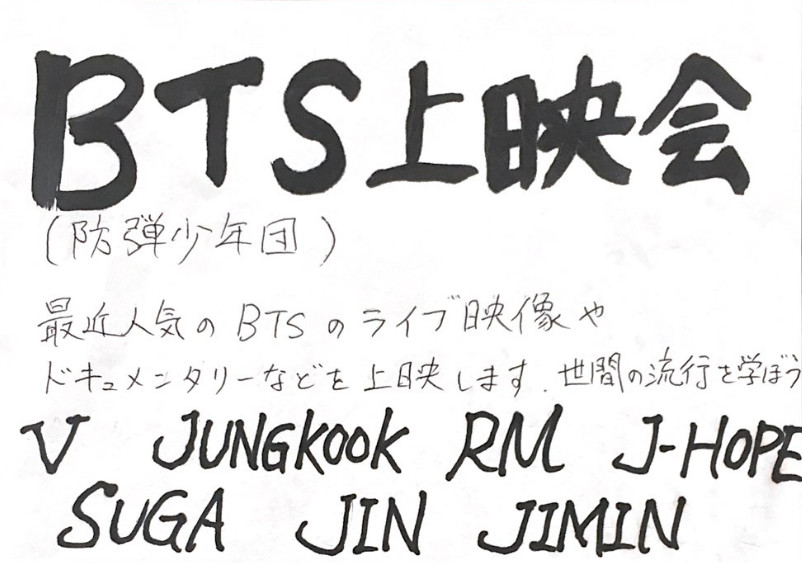 BTS上映会
(防弾少年団)
最近人気のBTSのライブ映像や
ドキュメンタリーなどを上映します.世間の流行を学ぼう
V JUNGKOOK RM J-HOPE
SUGA JIN JIMIN